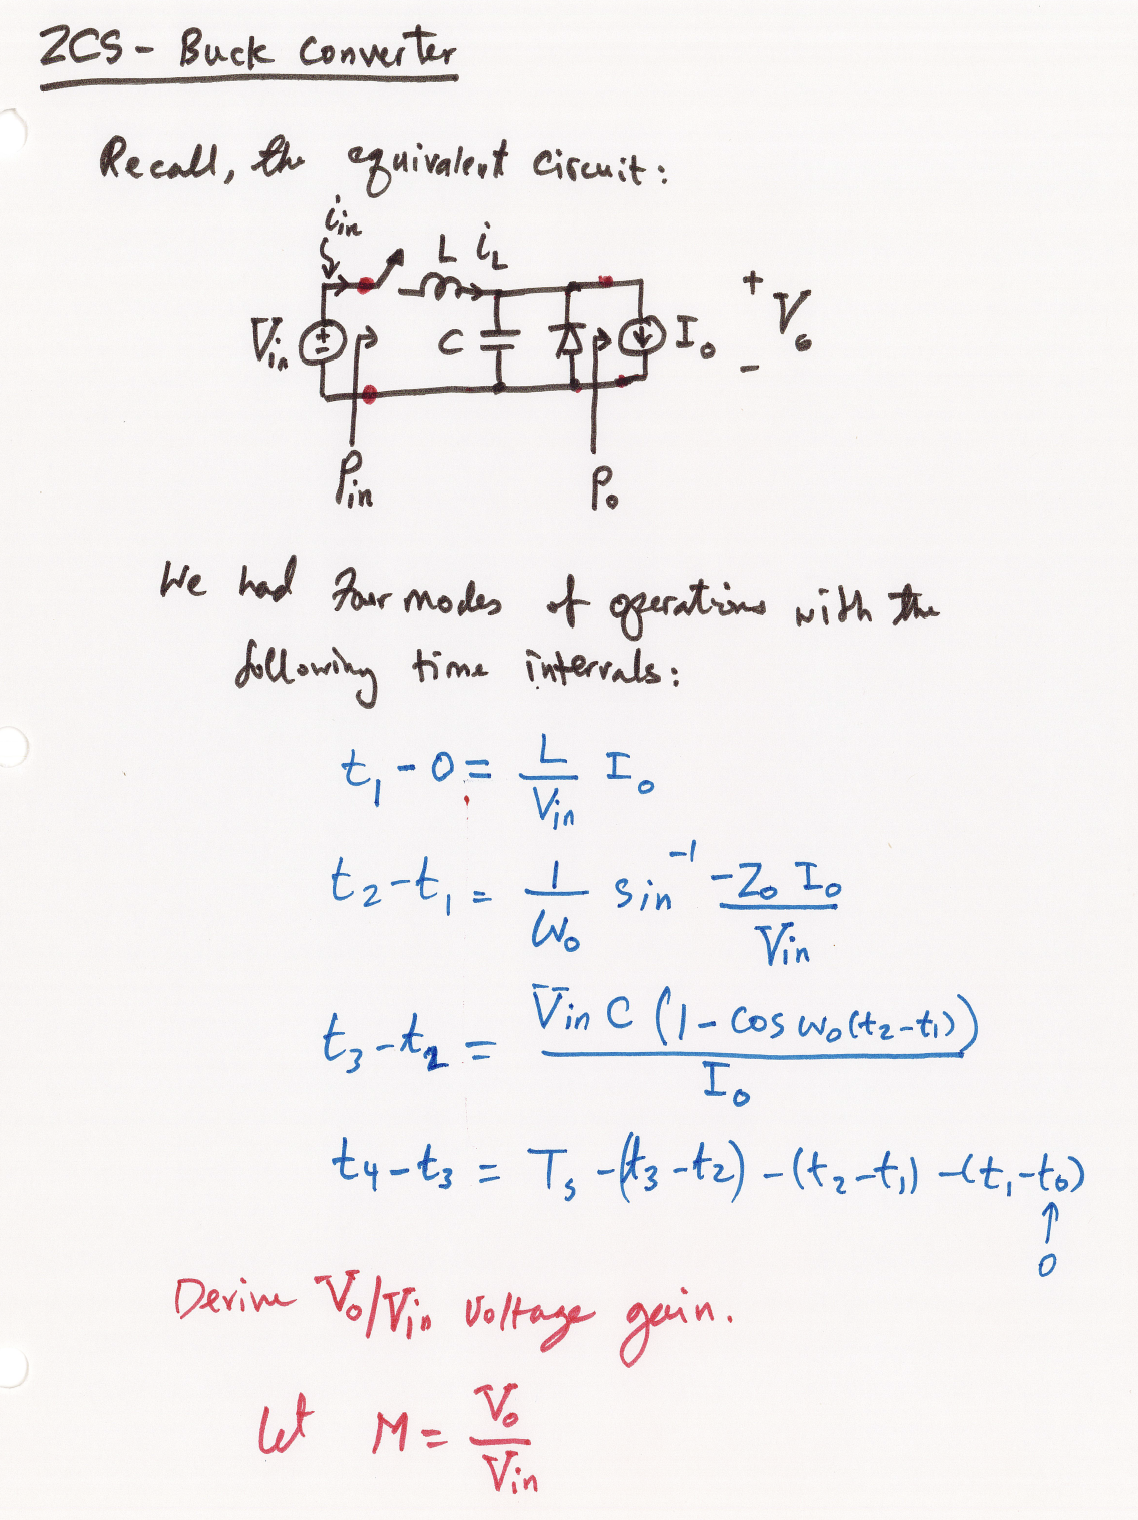 ZCS - Buck Converter
Recall, the equivalent circuit:
i_in
L i_L
V_in + - C I_o + V_o -
P_in P_o
We had four modes of operations with the
following time intervals:
t_1 - 0 = L/V_in I_o
t_2 - t_1 = 1/ω_o sin^-1 -Z_o I_o/V_in
t_3 - t_2 = V_in C (1 - cos ω_o(t_2 - t_1))/I_o
t_4 - t_3 = T_s - (t_3 - t_2) - (t_2 - t_1) - (t_1 - t_0)
↑
0
Derive V_o/V_in voltage gain.
Let M = V_o/V_in